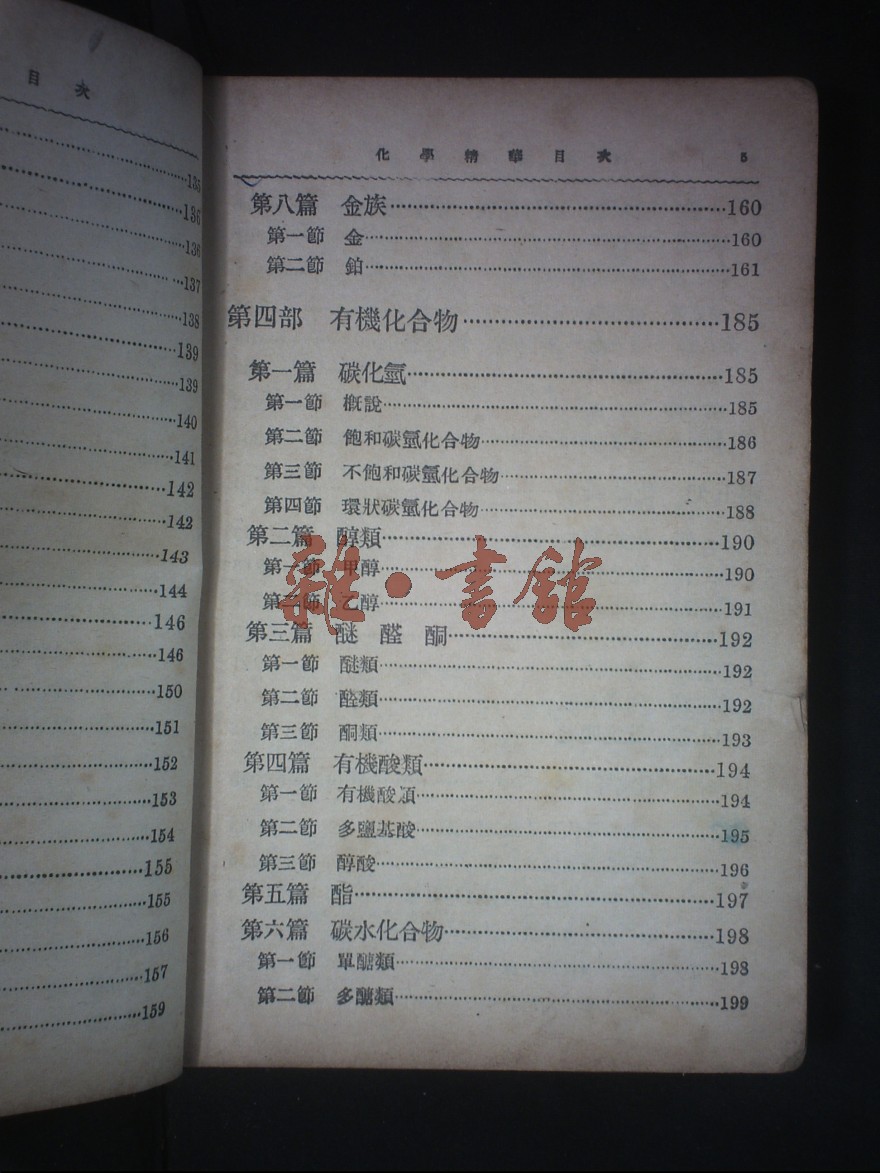 目次
135
136
136
137
138
139
139
140
141
142
142
143
144
146
146
150
151
152
153
154
155
155
156
157
159
化學精華目次 5
第八篇 金族 160
第一節 金 160
第二節 鉑 161
第四部 有機化合物 185
第一篇 碳化氫 185
第一節 概說 185
第二節 飽和碳氫化合物 186
第三節 不飽和碳氫化合物 187
第四節 環狀碳氫化合物 188
第二篇 醇類 190
第一節 甲醇 190
第二節 乙醇 191
雜·書館
第三篇 醚 醛 酮 192
第一節 醚類 192
第二節 醛類 192
第三節 酮類 193
第四篇 有機酸類 194
第一節 有機酸類 194
第二節 多鹽基酸 195
第三節 醇酸 196
第五篇 酯 197
第六篇 碳水化合物 198
第一節 單醣類 198
第二節 多醣類 199